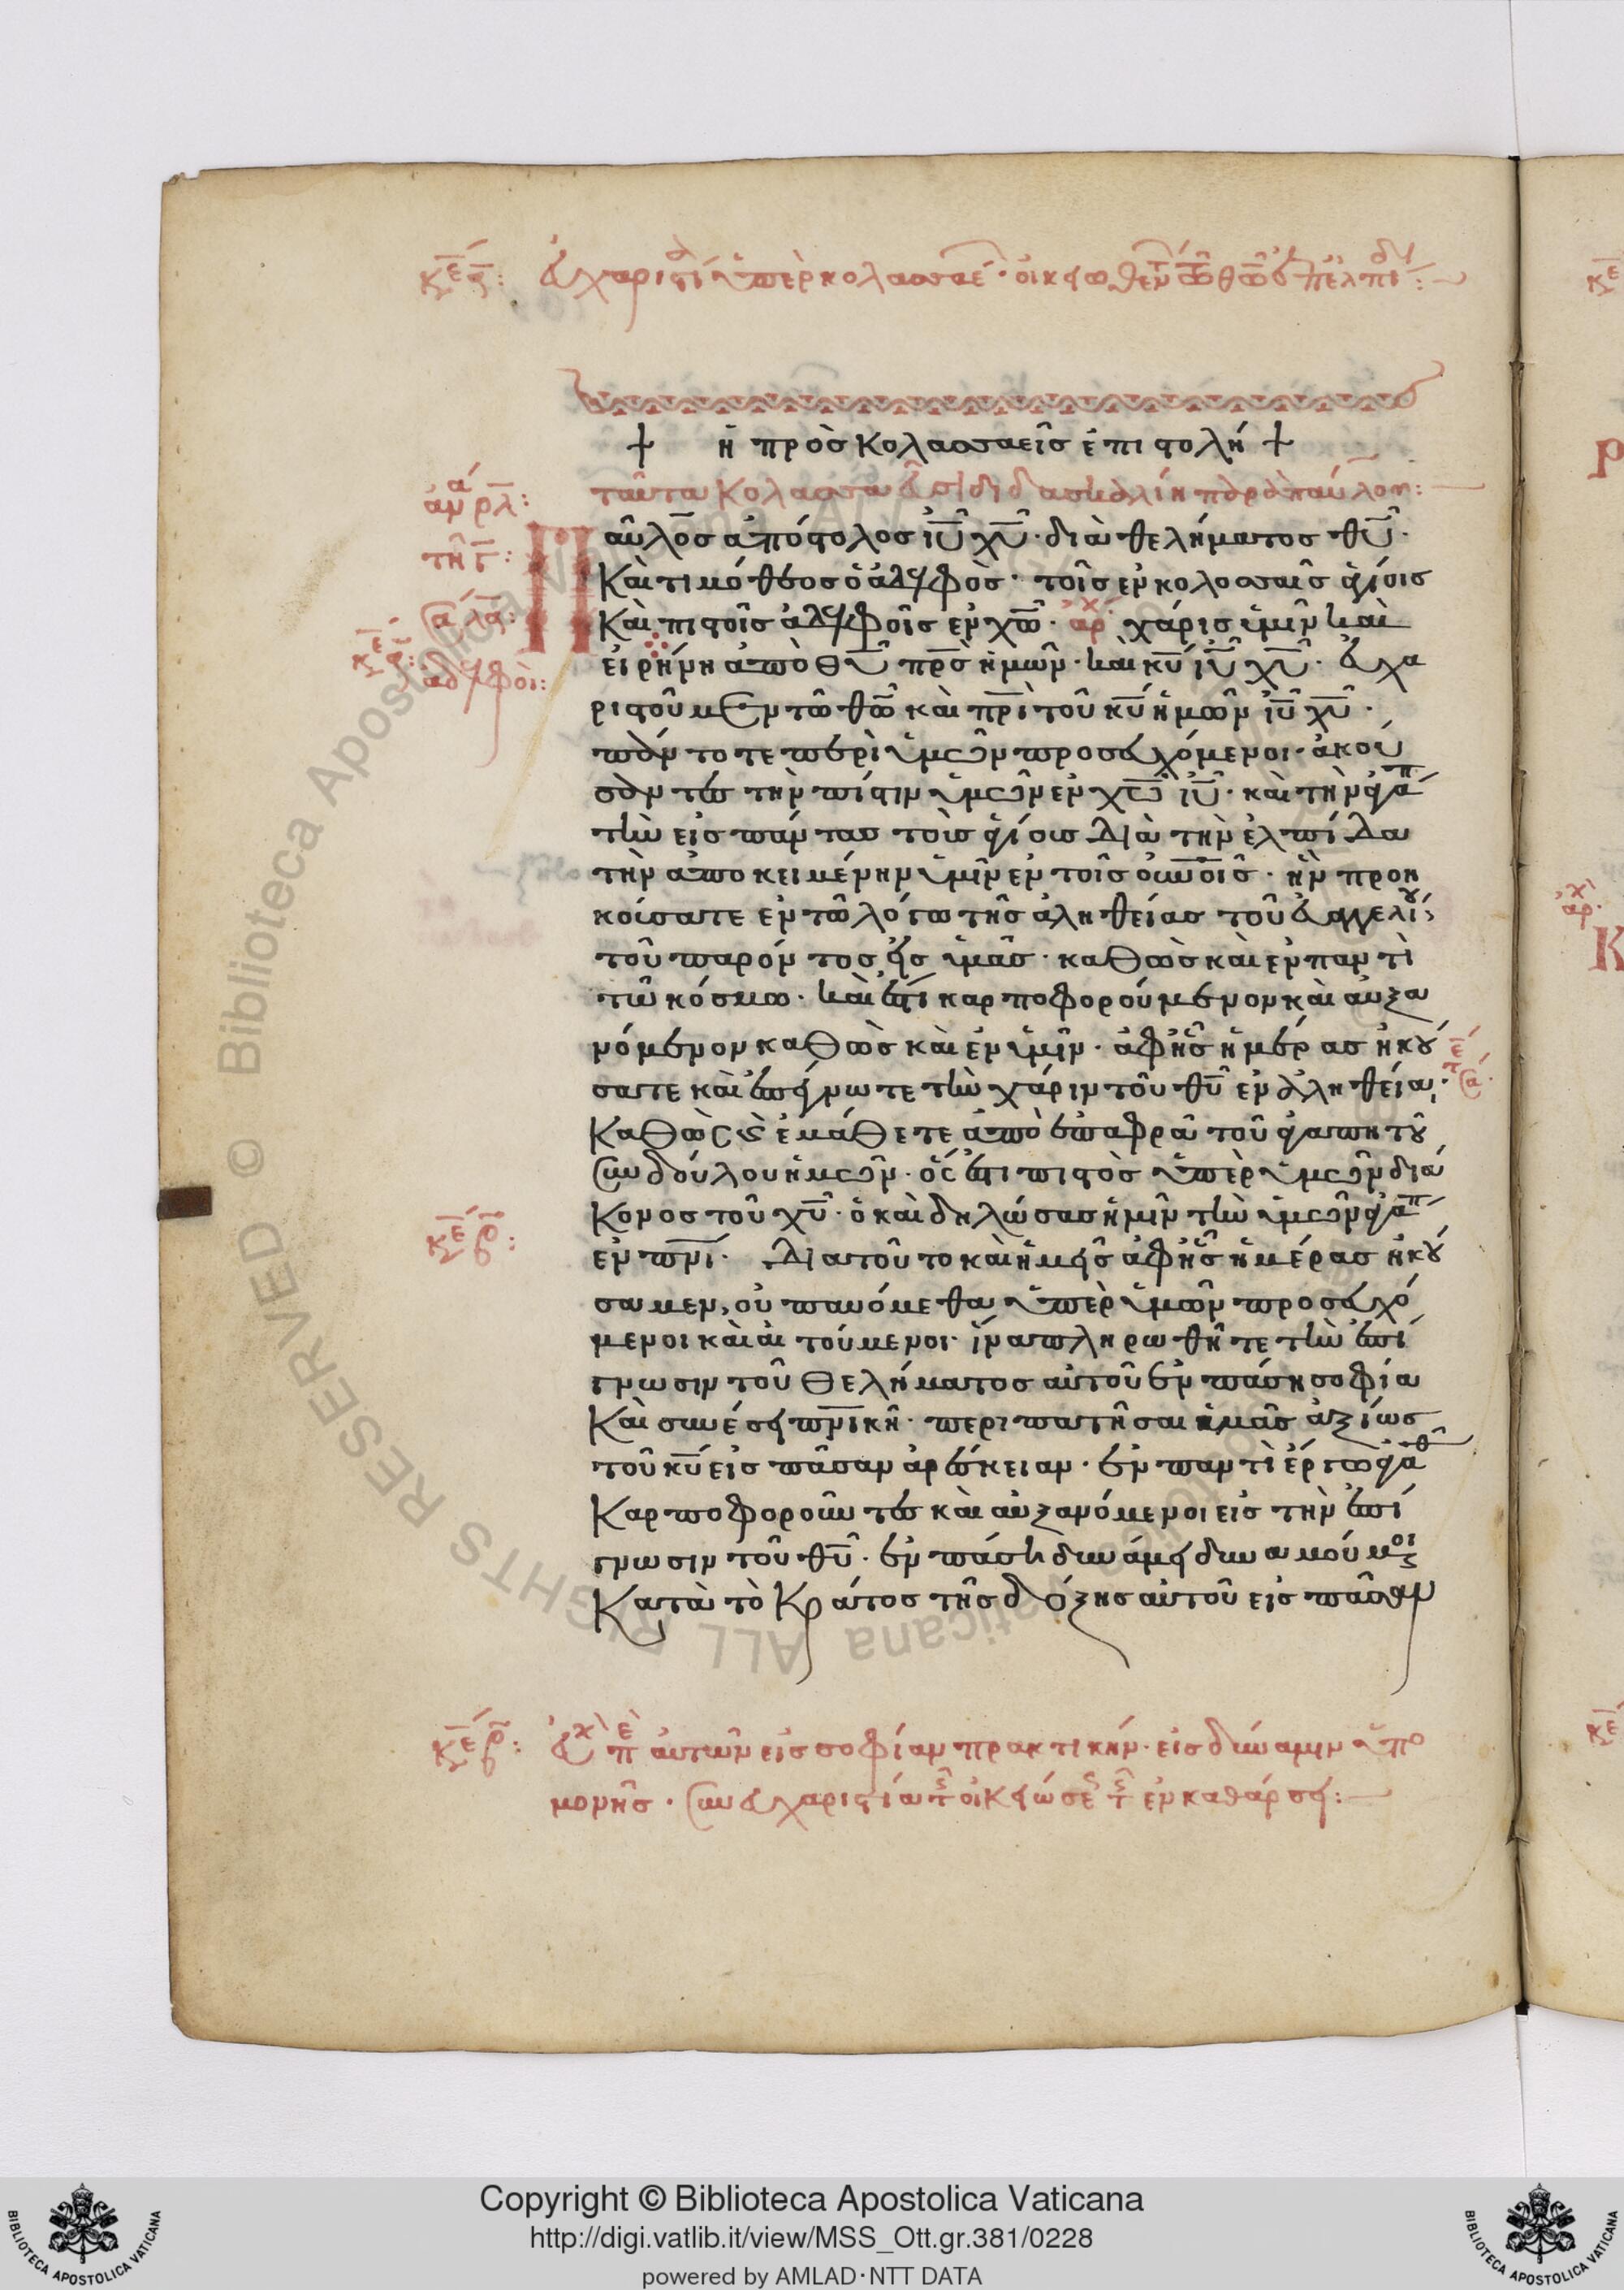 κε α: εὐχαριστί ὑπὲρ κολασσαέ· οἰκειωθεν τω θω ἐπ ἐλπίδι:
+ ἡ πρὸς Κολασσαεῖς ἐπιστολή +
ταῦτα Κολασσαεῦσι διδασκαλίη παρὰ παύλου:
Παῦλος ἀπόστολος ἰυ χυ· διὰ θελήματος θυ·
Καὶ τιμόθεος ὁ ἀδελφὸς· τοῖς ἐν κολοσσαῖς ἁγίοις
Καὶ πιστοῖς ἀδελφοῖς ἐν χω· ἀρχ χάρις ὑμῖν καὶ
εἰρήνη ἀπὸ θυ πρς ἡμῶν· καὶ κυ ἰυ χυ· εὐχα
ριστοῦμεν τῶ θω καὶ πρι τοῦ κυ ἡμῶν ἰυ χυ·
πάντοτε περὶ ὑμῶν προσευχόμενοι· ἀκού
σαντες τὴν πίστιν ὑμῶν ἐν χω ἰυ· καὶ τὴν ἀγάπ
τὴν εἰς πάντας τοὺς ἁγίους διὰ τὴν ἐλπίδα
τὴν ἀποκειμένην ὑμῖν ἐν τοῖς οὐνοῖς· ἣν προη
κούσατε ἐν τῶ λόγω τῆς ἀληθείας τοῦ εὐαγγελίου,
τοῦ παρόντος εἰς ὑμᾶς· καθὼς καὶ ἐν παντὶ
τῶ κόσμω· καὶ ἐστὶ καρποφορούμενον καὶ αὐξα
νόμενον καθὼς καὶ ἐν ὑμῖν· ἀφ ἧς ἡμέρας ἠκού
σατε καὶ ἐπέγνωτε τὴν χάριν τοῦ θυ ἐν ἀληθεία·
Καθὼς καὶ ἐμάθετε ἀπὸ ἐπαφρᾶ τοῦ ἀγαπητοῦ
συνδούλου ἡμῶν· ὅς ἐστι πιστὸς ὑπὲρ ὑμῶν διά
Κονος τοῦ χυ· ὁ καὶ δηλώσας ἡμῖν τὴν ὑμῶν ἀγάπ
κε β: ἐν πνι· Διὰ τοῦτο καὶ ἡμεῖς ἀφ ἧς ἡμέρας ἠκού
σαμεν, οὐ παυόμεθα ὑπὲρ ὑμῶν προσευχό
μενοι καὶ αἰτούμενοι· ἵνα πληρωθῆτε τὴν ἐπί
γνωσιν τοῦ θελήματος αὐτοῦ ἐν πάση σοφία
Καὶ συνέσει πνικῆ· περιπατῆσαι ὑμᾶς ἀξίως
τοῦ κυ εἰς πᾶσαν ἀρέσκειαν· ἐν παντὶ ἔργω ἀγαθ
Καρποφοροῦντες καὶ αὐξανόμενοι εἰς τὴν ἐπί
γνωσιν τοῦ θυ· ἐν πάση δυνάμει δυναμούμενοι
Κατὰ τὸ Κράτος τῆς δόξης αὐτοῦ εἰς πᾶσαν
κε β: εὐχὴ ἐπ αὐτῶν εἰς σοφίαν πρακτικήν· εἰς δύναμιν ὑπο
μονῆς· συν εὐχαριστία τῆς οἰκειώσε τῆς ἐν καθάρσει:
Copyright © Biblioteca Apostolica Vaticana
http://digi.vatlib.it/view/MSS_Ott.gr.381/0228
powered by AMLAD·NTT DATA